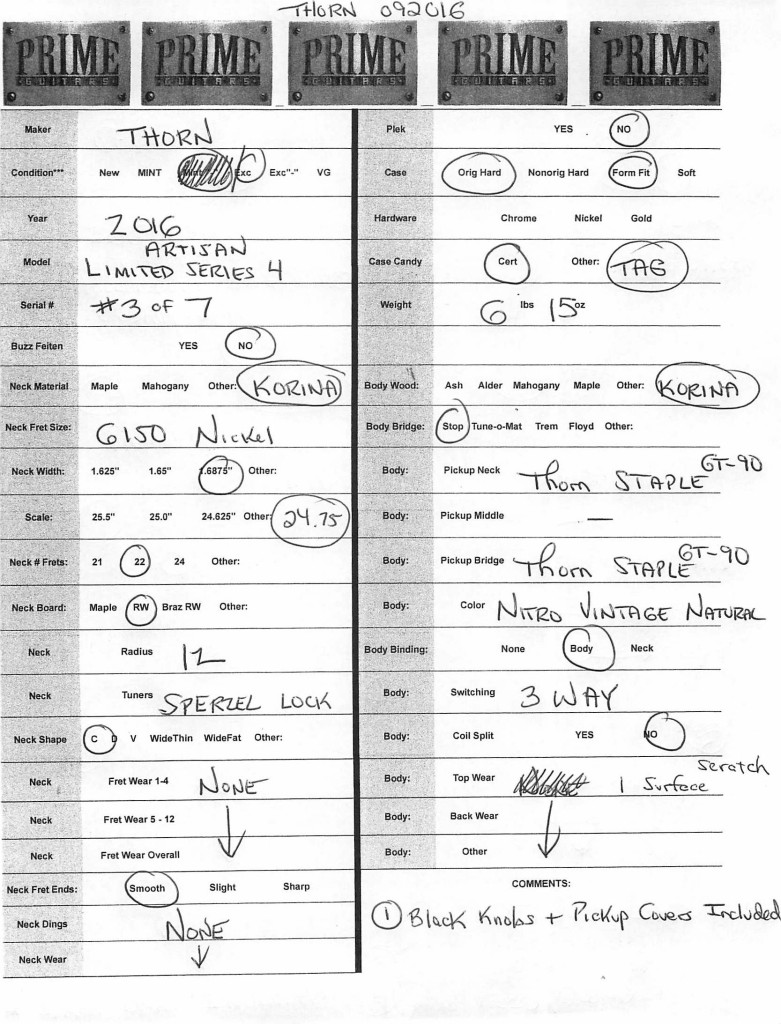 THORN 092016
PRIME GUITARS PRIME GUITARS PRIME GUITARS PRIME GUITARS PRIME GUITARS
Maker THORN
Condition*** New MINT Exc Exc"-" VG
Year 2016
Model ARTISAN
LIMITED SERIES 4
Serial # #3 of 7
Buzz Feiten YES NO
Neck Material Maple Mahogany Other: KORINA
Neck Fret Size: 6150 Nickel
Neck Width: 1.625" 1.65" 1.6875" Other:
Scale: 25.5" 25.0" 24.625" Other: 24.75
Neck # Frets: 21 22 24 Other:
Neck Board: Maple RW Braz RW Other:
Neck Radius 12
Neck Tuners SPERZEL LOCK
Neck Shape C D V WideThin WideFat Other:
Neck Fret Wear 1-4 NONE
Neck Fret Wear 5 - 12
Neck Fret Wear Overall
Neck Fret Ends: Smooth Slight Sharp
Neck Dings NONE
Neck Wear
Plek YES NO
Case Orig Hard Nonorig Hard Form Fit Soft
Hardware Chrome Nickel Gold
Case Candy Cert Other: TAG
Weight 6 lbs 15 oz
Body Wood: Ash Alder Mahogany Maple Other: KORINA
Body Bridge: Stop Tune-o-Mat Trem Floyd Other:
Body: Pickup Neck Thorn STAPLE GT-90
Body: Pickup Middle —
Body: Pickup Bridge Thorn STAPLE GT-90
Body: Color NITRO VINTAGE NATURAL
Body Binding: None Body Neck
Body: Switching 3 WAY
Body: Coil Split YES NO
Body: Top Wear 1 Surface Scratch
Body: Back Wear
Body: Other
COMMENTS:
1 Black Knobs + Pickup Covers Included